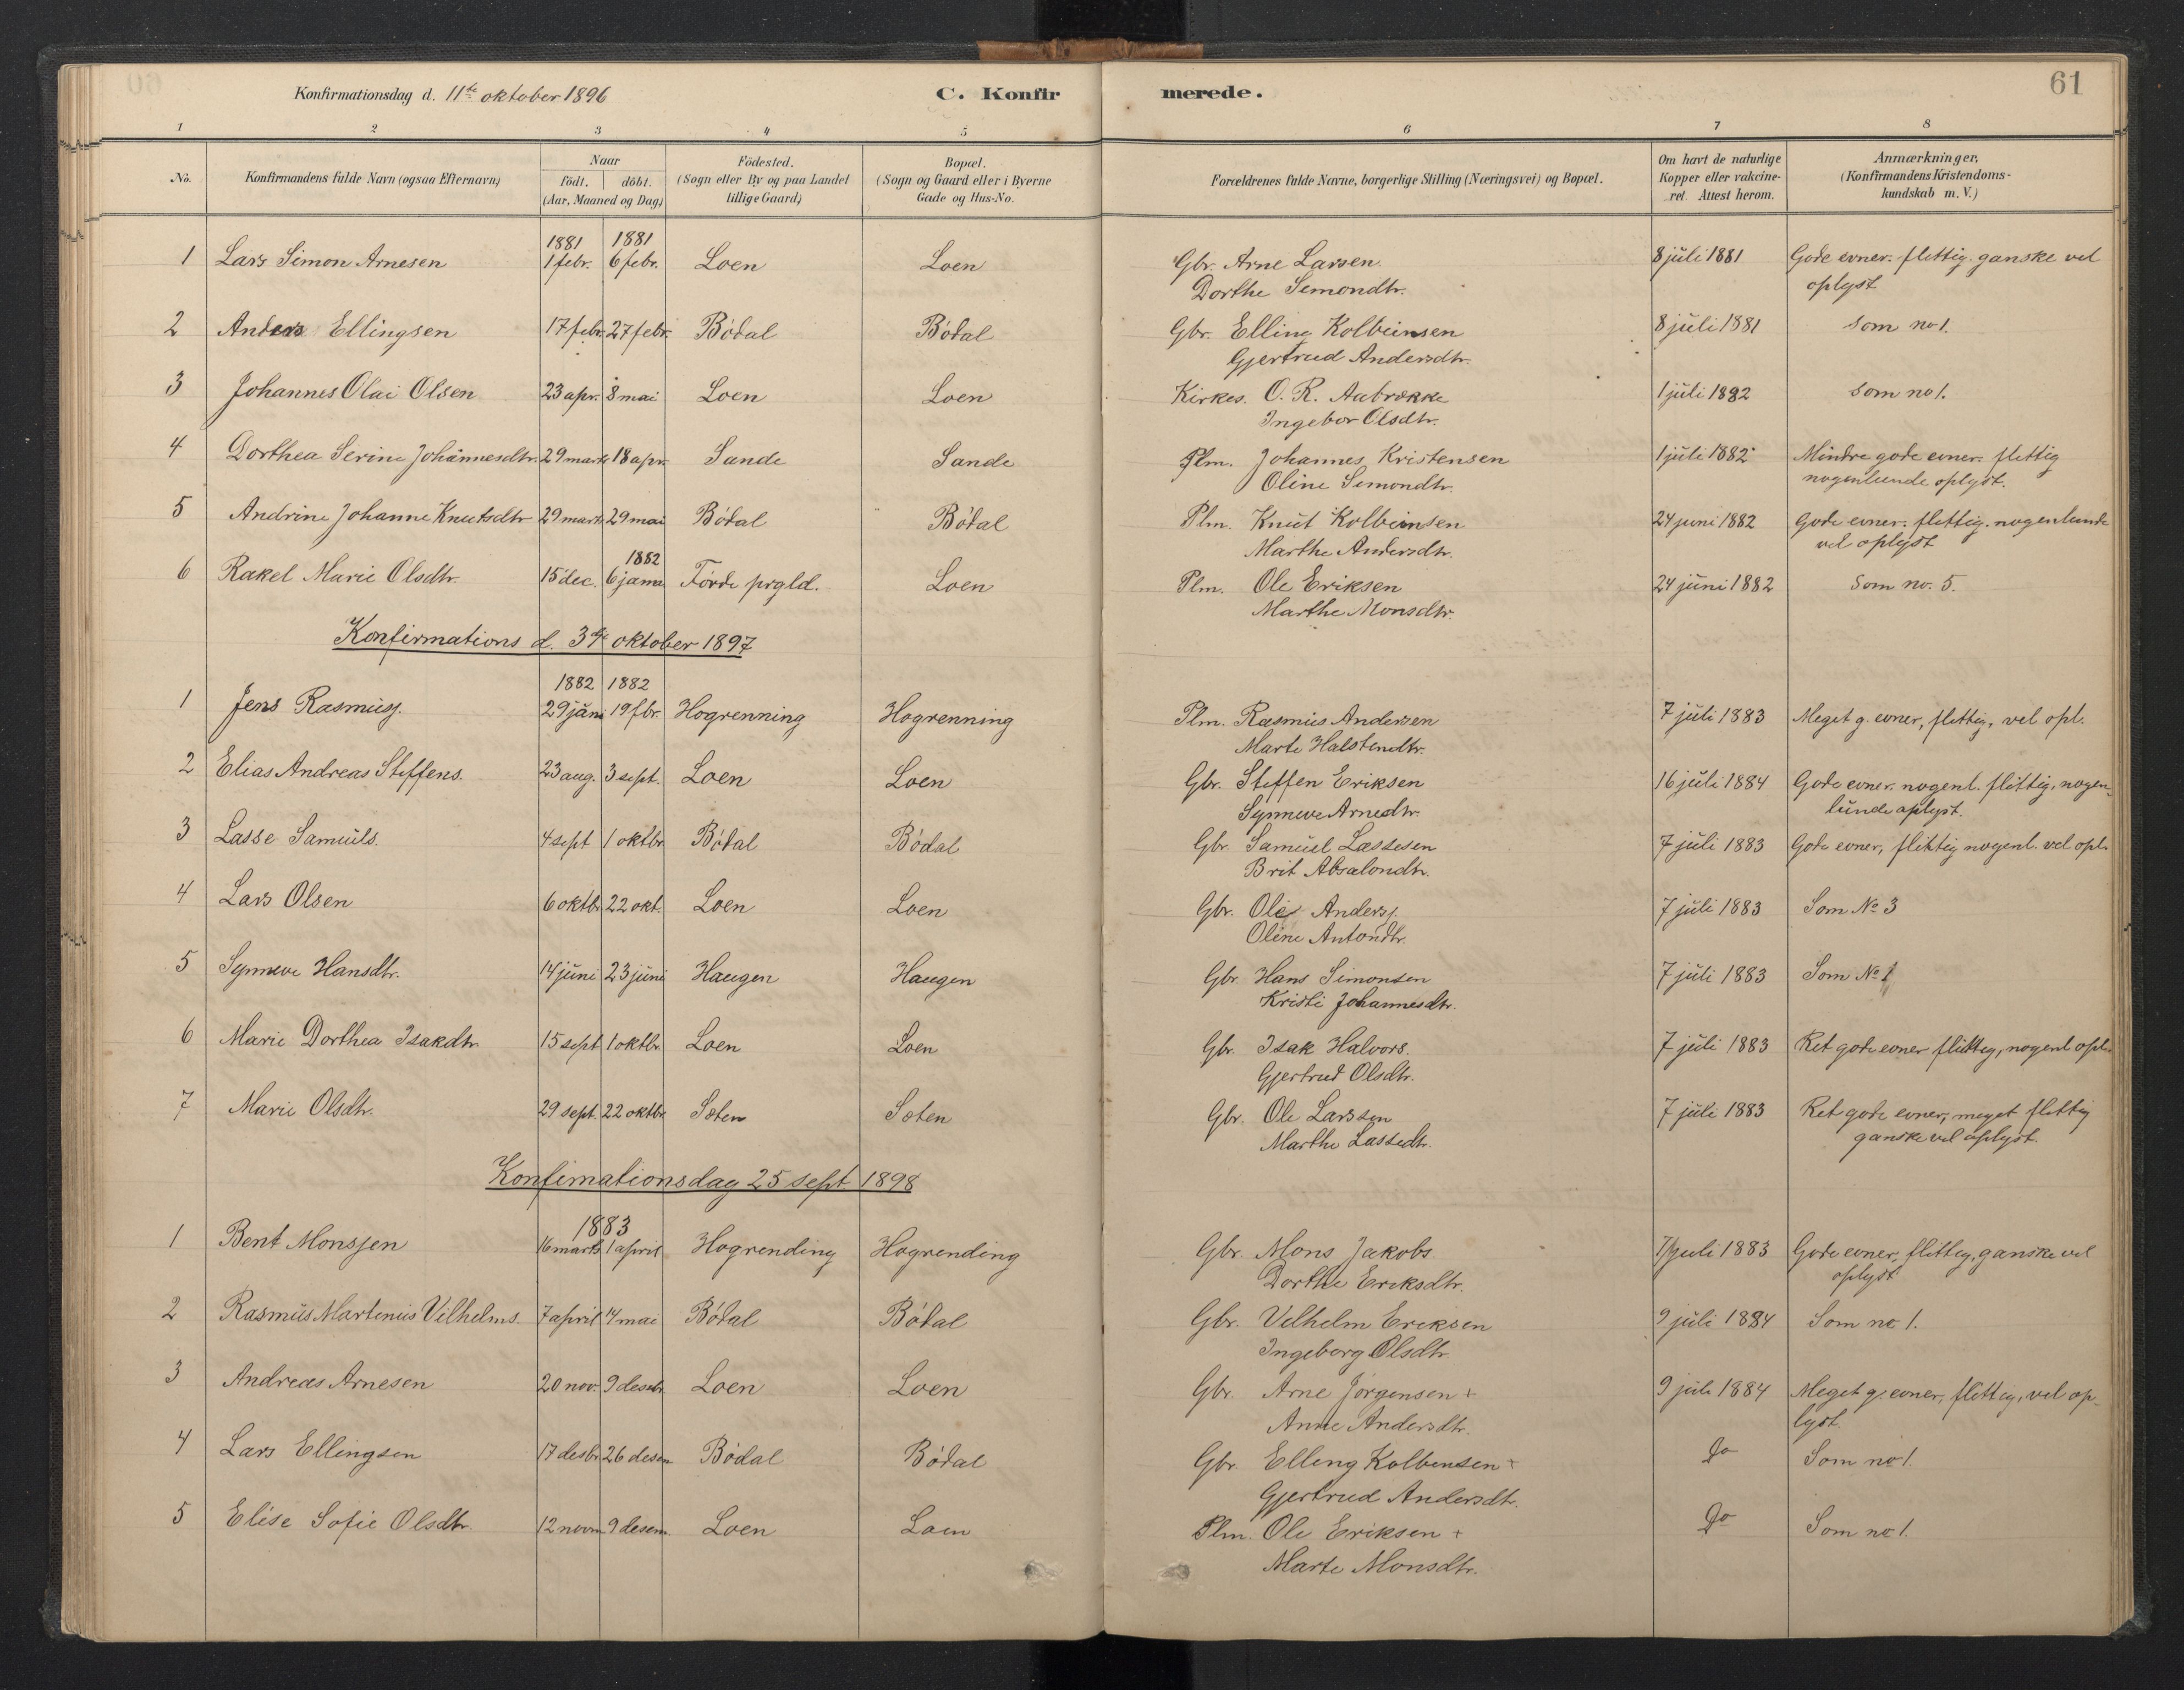 Konfirmationsdag d. 11te oktober 1896 C. Konfir merede. 61
1 2 3 4 5 6 7 8
No. Konfirmandens fulde Navn (ogsaa Efternavn) Naar födt. döbt. (Aar, Maaned og Dag) Födested. (Sogn eller By og paa Landet tillige Gaard) Bopæl. (Sogn og Gaard eller i Byerne Gade og Hus-No. Forældrenes fulde Navne, borgerlige Stilling (Næringsvei) og Bopæl. Om havt de naturlige Kopper eller vakcine-ret. Attest herom. Anmærkninger, (Konfirmandens Kristendoms-kundskab m. V.)
1881 1881
1 Lars Simon Arnesen 1 febr. 6 febr. Loen Loen Gbr. Arne Larsen 8 juli 1881 Gode evner. flittig. ganske vel
Dorthe Simondtr. oplyst
2 Anders Ellingsen 17 febr. 27 febr. Bödal Bödal Gbr. Elling Kolbeinsen 8 juli 1881 som no 1.
Gjertrud Andersdtr.
3 Johannes Olai Olsen 23 apr. 8 mai Loen Loen Kirkes. O. R. Aabrække 1 juli 1882 som no 1.
Ingebor Olsdtr.
4 Dorthea Serine Johannesdtr. 29 marts 18 apr. Sande Sande Plm. Johannes Kristensen 1 juli 1882 Mindre gode evner. flittig
Oline Simondtr. nogenlunde oplyst.
5 Andrine Johanne Knutsdtr 29 marts 29 mai Bödal Bödal Plm. Knut Kolbeinsen 24 juni 1882 Gode evner. flittig. nogenlunde
Marthe Andersdtr. vel oplyst
1882
6 Rakel Marie Olsdtr. 15 dec. 6 janua Förde prgld. Loen Plm. Ole Eriksen 24 juni 1882 Som no. 5.
Marthe Monsdtr.
Konfirmations d. 3die oktober 1897
1882 1882
1 Jens Rasmuss. 29 jan 19 fbr. Hogrenning Hogrenning Plm. Rasmus Andersen 7 juli 1883 Meget g. evner, flittig, vel opl.
Marte Halstendtr.
2 Elias Andreas Steffens. 23 aug. 3 sept. Loen Loen Gbr. Steffen Eriksen 16 juli 1884 Gode evner. nogenl. flittig, nogen-
Synneve Arnedtr. lunde oplyst.
3 Lasse Samuels. 4 sept 1 oktbr Bödal Bödal Gbr. Samuel Lassesen 7 juli 1883 Gode evner, flittig nogenl. vel opl.
Brit Absalondtr.
4 Lars Olsen 6 oktbr 22 okt. Loen Loen Gbr. Ole Anderss. 7 juli 1883 Som No 3
Oline Antondtr.
5 Synneve Hansdtr. 14 juni 23 juni Haugen Haugen Gbr. Hans Simonsen 7 juli 1883 Som No 1
Kristi Johannesdtr.
6 Marie Dorthea Isakdtr. 15 sept 1 oktbr. Loen Loen Gbr. Isak Halvors. 7 juli 1883 Ret gode evner flittig, nogenl opl.
Gjertrud Olsdtr.
7 Marie Olsdtr. 29 sept. 22 oktbr Sæten Sæten Gbr. Ole Larssen 7 juli 1883 Ret gode evner, meget flittig
Marthe Lassedtr. ganske vel oplyst.
Konfimationsdag 25 sept 1898
1883
1 Bent Monssen 16 marts 1 april Hogrending Hogrending Gbr. Mons Jakobs 7 juli 1883 Gode evner, flittig, ganske vel
Dorthe Eriksdtr. oplyst
2 Rasmus Martinius Vilhelms. 7 april 14 mai Bödal Bödal Gbr. Vilhelm Eriksen 9 juli 1884 Som no 1.
Ingeborg Olsdtr
3 Andreas Arnesen 20 nov. 9 desebr. Loen Loen Gbr. Arne Jörgensen + 9 juli 1884 Meget g. evner, flittig, vel op-
Anne Andersdtr. lyst.
4 Lars Ellingsen 17 desbr 26 desem Bödal Bödal Gbr. Elling Kolbensen + Do Som no 1.
Gjertrud Andersdtr.
5 Elise Sofie Olsdtr. 12 novm 9 desem. Loen Loen Plm. Ole Eriksen + Do Som no 1.
Marte Monsdtr.